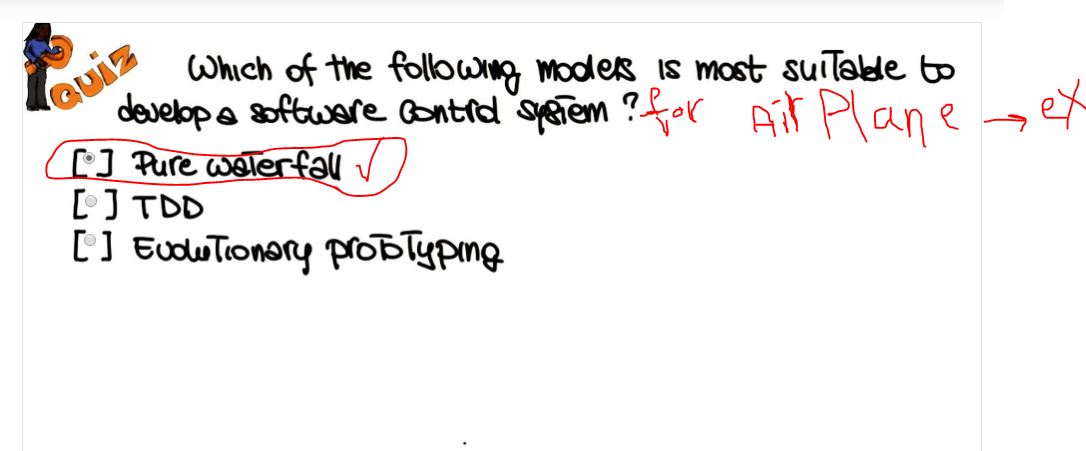 QUIZ
Which of the following models is most suitable to
develop a software control system? for Air Plane → ex
[ ] Pure waterfall ✓
[ ] TDD
[ ] Evolutionary prototyping